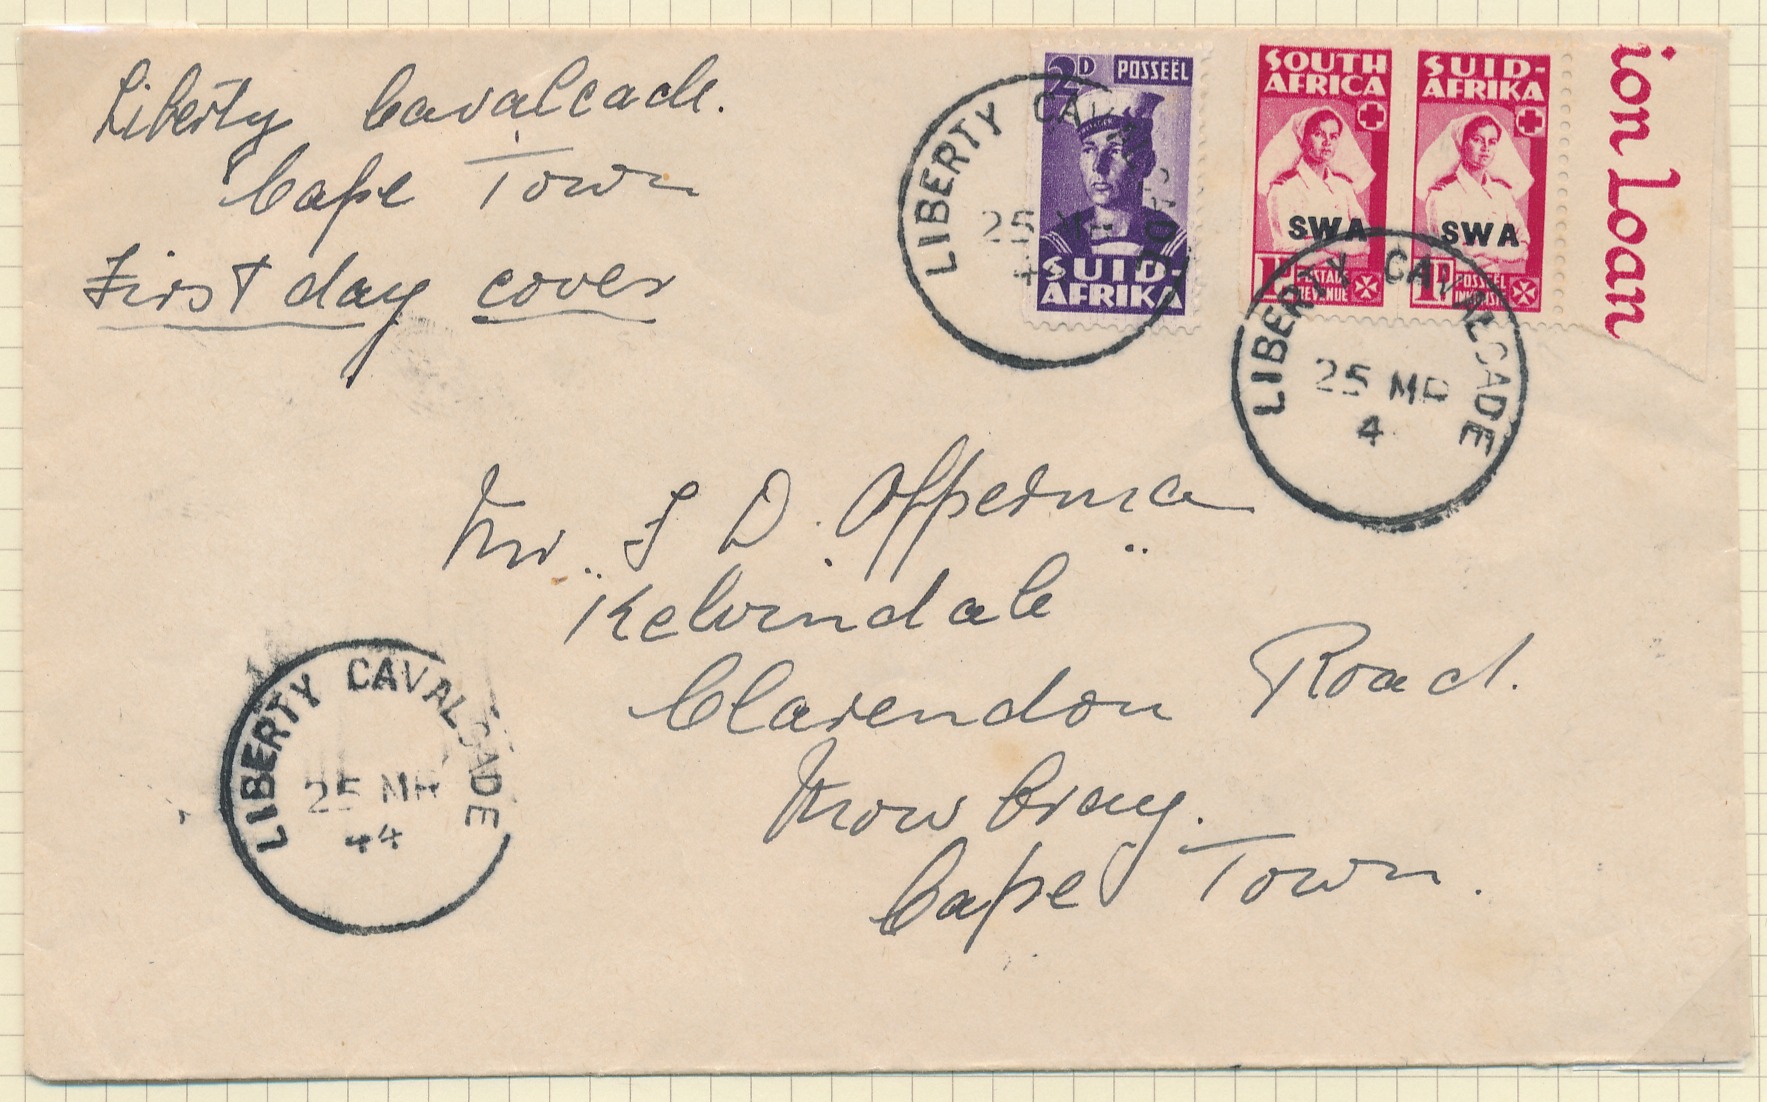 Liberty Cavalcade.
Cape Town
First day cover
2D POSSEËL
SUID-
AFRIKA
SOUTH
AFRICA
SWA
1D POSTAGE
REVENUE
SUID-
AFRIKA
SWA
1D POSSEËL
INKOMSTE
ion Loan
LIBERTY CAVALCADE
25 MR
4
LIBERTY CAVALCADE
25 MR
4
Mr. D. Opperma
"Kelvindale"
Clarendon Road.
Mowbray.
Cape Town.
LIBERTY CAVALCADE
25 MR
44